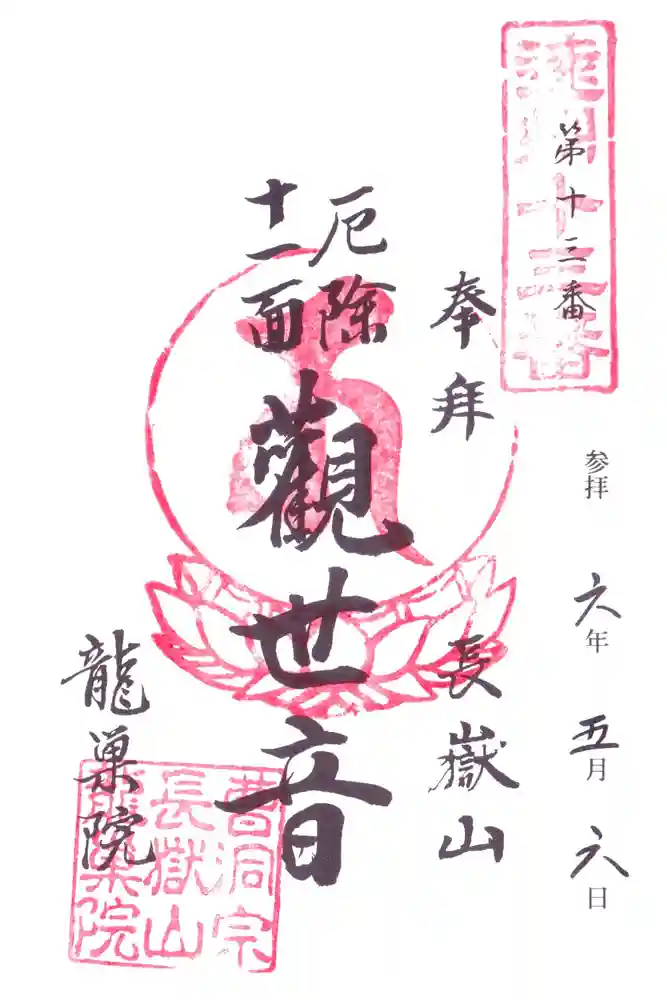 遠州十三番
第十三番
参拝 六年 五月 六日
奉拝
長嶽山
厄除
十一面
觀世音
龍巣院
曹洞宗
長嶽山
龍巣院